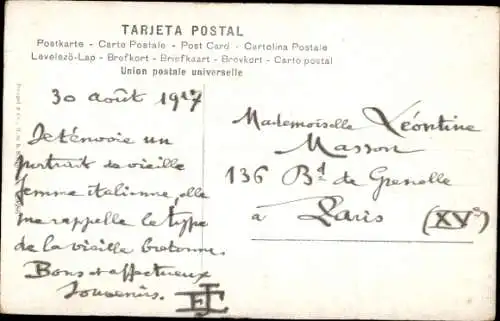 TARJETA POSTAL
Postkarte - Carte Postale - Post Card - Cartolina Postale
Levelező-Lap - Brefkort - Briefkaart - Brevkort - Carte postal
Union postale universelle
30 août 1917
Je t'envoie un
portrait de vieille
femme italienne, elle
me rappelle le type
de la vieille bretonne.
Bons et affectueux
souvenirs.
Mademoiselle Léontine
Masson
136 Bd de Grenelle
à Paris (XVe)